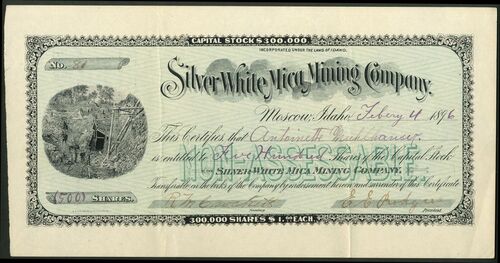 CAPITAL STOCK $300,000.
INCORPORATED UNDER THE LAWS OF IDAHO.
No. 86
Silver White Mica Mining Company.
Moscow, Idaho, 1896
This Certifies that Antoinett
is entitled to Five Hundred Shares of the Capital Stock
NON ASSESSABLE
OF SILVER WHITE MICA MINING COMPANY.
Transferable on the books of the Company by endorsement hereon and surrender of this Certificate
(500) SHARES.
E. E.
President
300,000 SHARES $1.00 EACH.